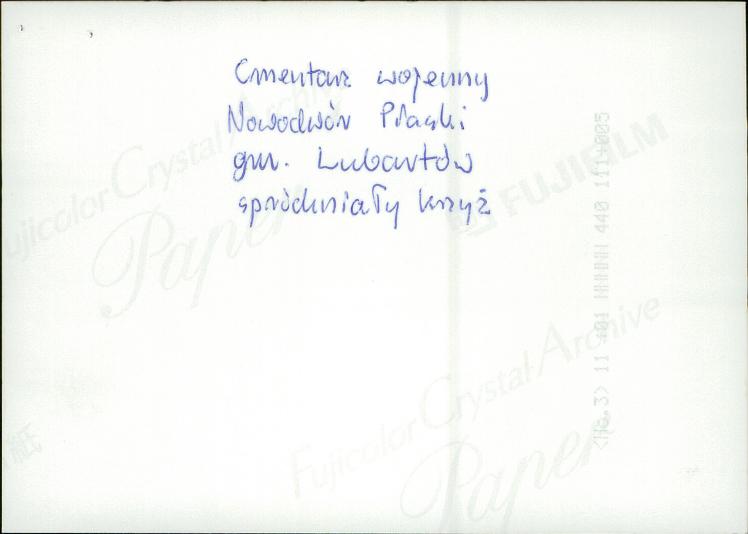 Cmentarz wojenny
Nowodwór Piaski
gm. Lubartów
spróchniały krzyż
Fujicolor Crystal Archive
Paper
FUJIFILM
<No.3> 11 401 NNNNN 440 111+005
Fujicolor Crystal Archive
Paper